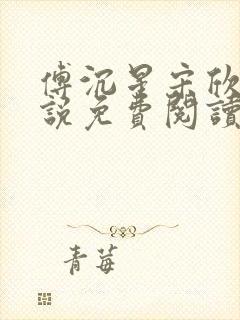 傅沉星宋欣
說免費閱讀
青莓